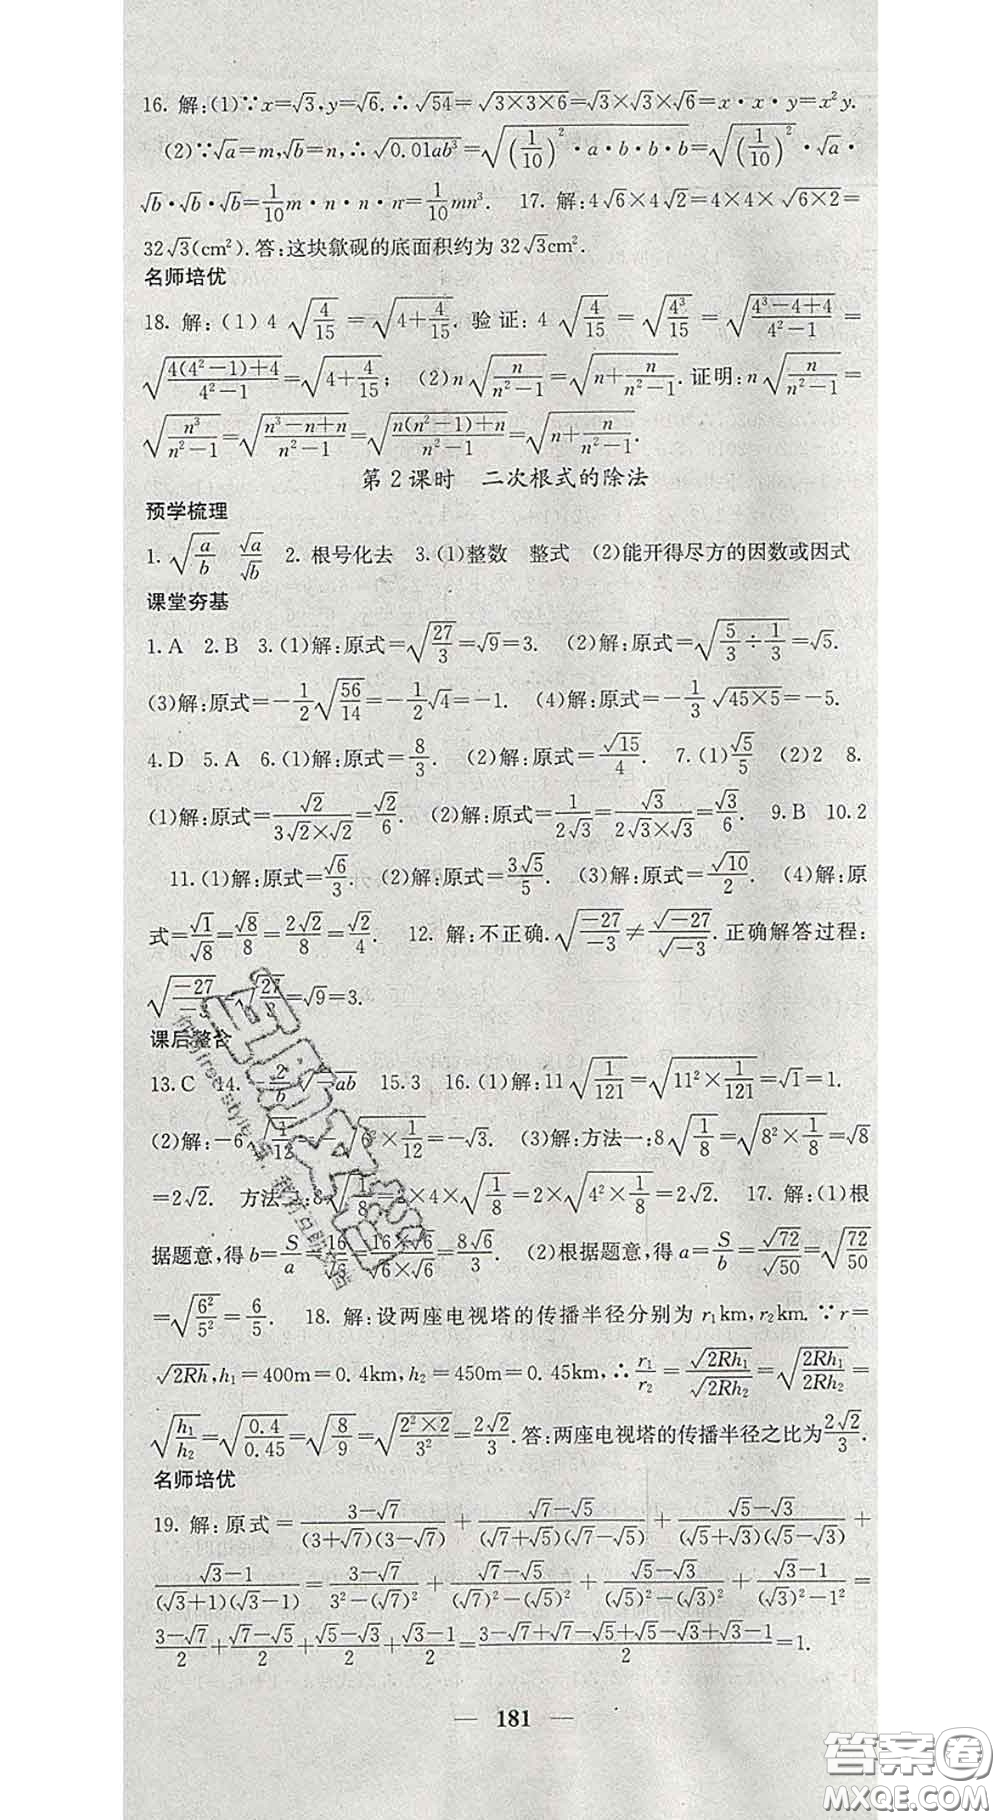 16. 解:(1)∵x=√3,y=√6.∴√54=√(3×3×6)=√3×√3×√6=x·x·y=x²y.
(2)∵√a=m,√b=n,∴√(0.01ab³)=√((1/10)²·a·b·b·b)=√((1/10)²)·√a·
√b·√b·√b=1/10 m·n·n·n=1/10 mn³. 17. 解:4√6×4√2=4×4×√(6×2)=
32√3(cm²).答:这块歙砚的底面积约为32√3cm².
名师培优
18. 解:(1)4√(4/15)=√(4+4/15).验证:4√(4/15)=√(4³/15)=√((4³-4+4)/(4²-1))=
√((4(4²-1)+4)/(4²-1))=√(4+4/15); (2)n√(n/(n²-1))=√(n+n/(n²-1)).证明:n√(n/(n²-1))=
√(n³/(n²-1))=√((n³-n+n)/(n²-1))=√((n(n²-1)+n)/(n²-1))=√(n+n/(n²-1)).
第2课时 二次根式的除法
预学梳理
1. √(a/b) √a/√b 2. 根号化去 3.(1)整数 整式 (2)能开得尽方的因数或因式
课堂夯基
1. A 2. B 3.(1)解:原式=√(27/3)=√9=3. (2)解:原式=√(5/3÷1/3)=√5.
(3)解:原式=-1/2√(56/14)=-1/2√4=-1. (4)解:原式=-1/3√(45×5)=-5.
4. D 5. A 6.(1)解:原式=8/3. (2)解:原式=√15/4. 7.(1)√5/5 (2)2 8.
(1)解:原式=√2/(3√2×√2)=√2/6. (2)解:原式=1/(2√3)=√3/(2√3×√3)=√3/6. 9. B 10. 2
11.(1)解:原式=√6/3. (2)解:原式=3√5/5. (3)解:原式=√10/2. (4)解:原
式=√1/√8=√8/8=2√2/8=√2/4. 12. 解:不正确.√(-27/-3)≠√-27/√-3.正确解答过程:
√(-27/-3)=√(27/3)=√9=3.
课后整合
13. C 14. 15. 3 16.(1)解:11√(1/121)=√(11²×1/121)=√1=1.
(2)解:-6√(1/12)=-√(6²×1/12)=-√3. (3)解:方法一:8√(1/8)=√(8²×1/8)=√8
=2√2. 方法二:8√(1/8)=2×4×√(1/8)=2×√(4²×1/8)=2√2. 17. 解:(1)根
据题意,得b=S/a=16/√6=(16×√6)/(√6×√6)=8√6/3. (2)根据题意,得a=S/b=√72/√50=√(72/50)
=√(6²/5²)=6/5. 18. 解:设两座电视塔的传播半径分别为r₁km,r₂km.∵r=
√(2Rh),h₁=400m=0.4km,h₂=450m=0.45km,∴r₁/r₂=√(2Rh₁)/√(2Rh₂)=√(2Rh₁/2Rh₂)=
√(h₁/h₂)=√(0.4/0.45)=√(8/9)=√((2²×2)/3²)=2√2/3.答:两座电视塔的传播半径之比为2√2/3.
名师培优
19. 解:原式=(3-√7)/((3+√7)(3-√7))+(√7-√5)/((√7+√5)(√7-√5))+(√5-√3)/((√5+√3)(√5-√3))+
(√3-1)/((√3+1)(√3-1))=(3-√7)/(3²-(√7)²)+(√7-√5)/((√7)²-(√5)²)+(√5-√3)/((√5)²-(√3)²)+(√3-1)/((√3)²-1²)=
(3-√7)/2+(√7-√5)/2+(√5-√3)/2+(√3-1)/2=(3-√7+√7-√5+√5-√3+√3-1)/2=1.
— 181 —
答案圈
MXQE.COM